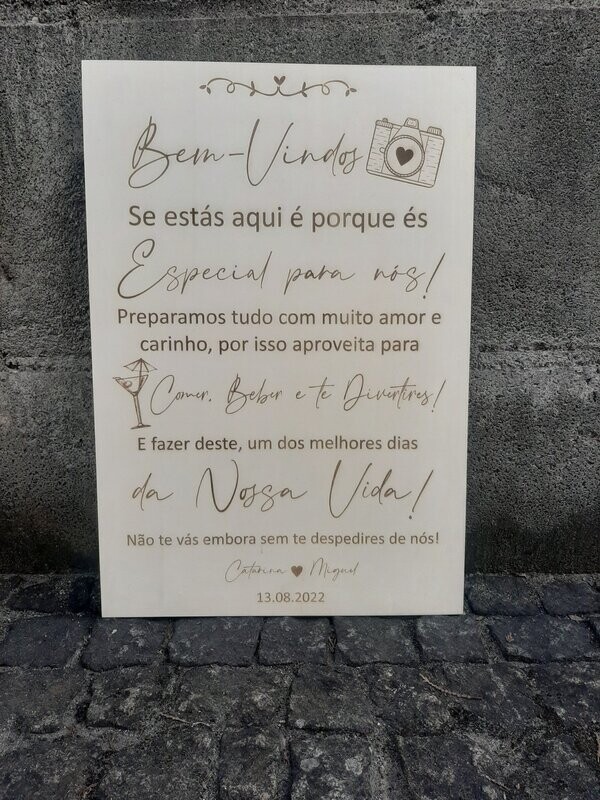 Bem-Vindos
Se estás aqui é porque és
Especial para nós!
Preparamos tudo com muito amor e
carinho, por isso aproveita para
Comer, Beber e te Divertires!
E fazer deste, um dos melhores dias
da Nossa Vida!
Não te vás embora sem te despedires de nós!
Catarina ♥ Miguel
13.08.2022